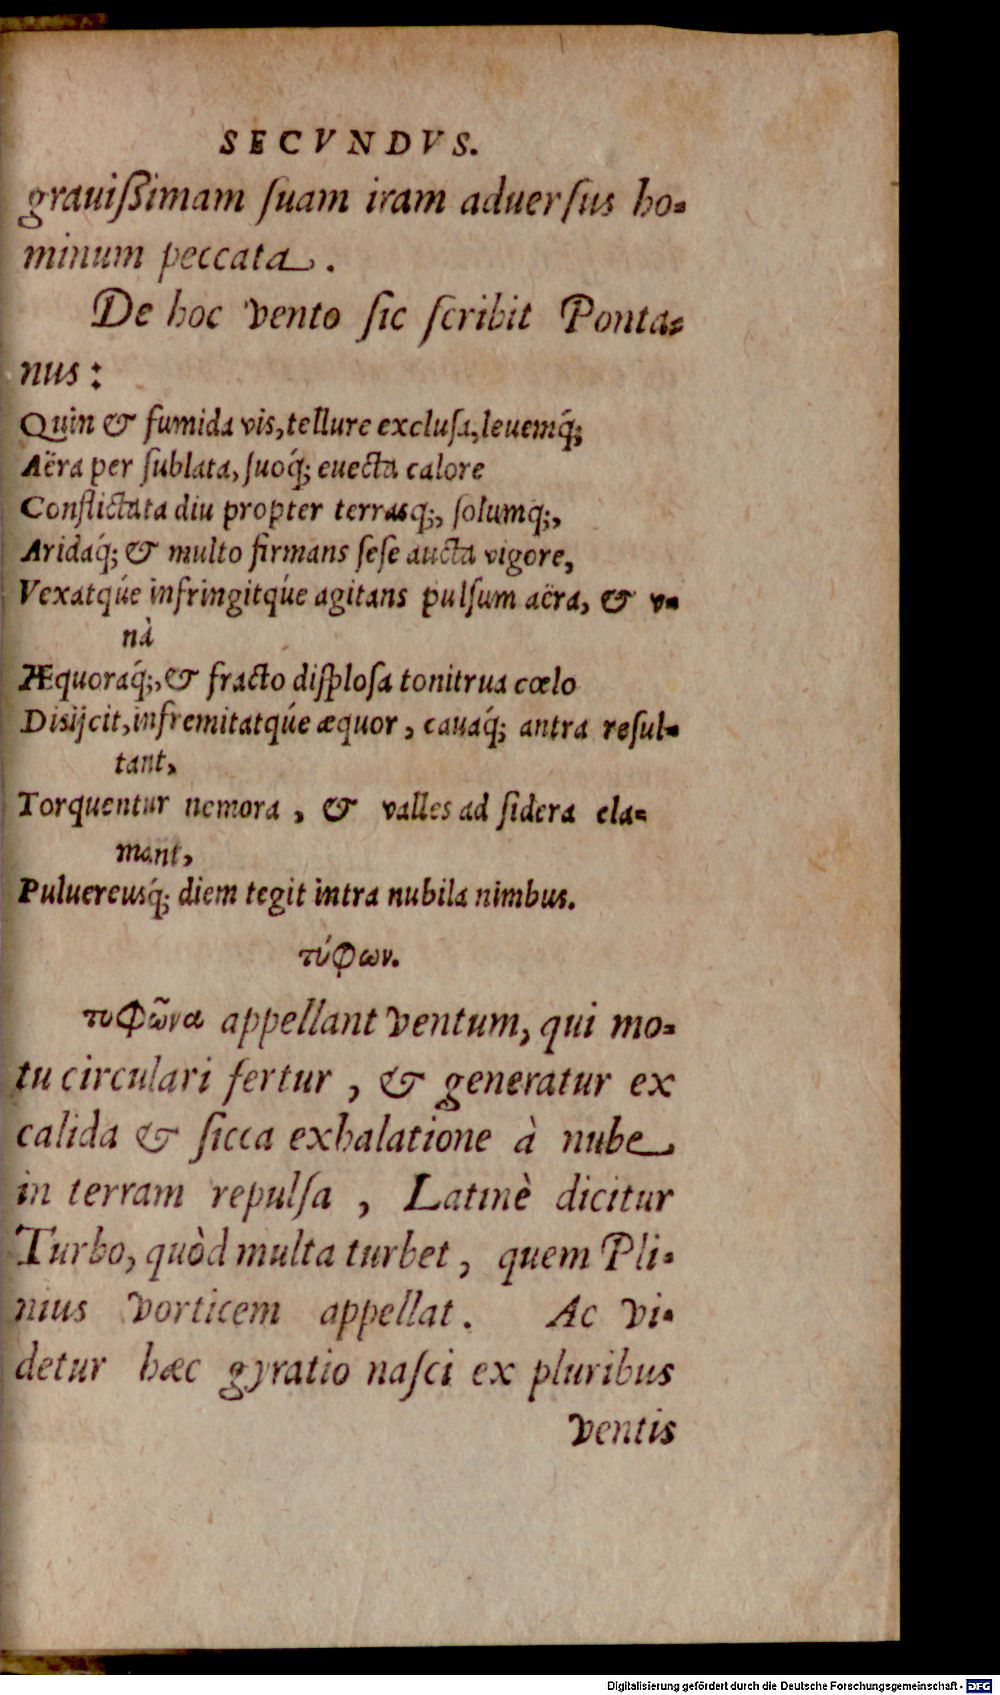 SECVNDVS.
grauißimam ſuam iram aduerſus ho-
minum peccata.
De hoc vento ſic ſcribit Ponta-
nus:
Quin & fumida vis, tellure excluſa, leuemq́;
Aëra per ſublata, ſuoq́; euecta calore
Conflictata diu propter terrasq;, ſolumq;,
Aridaq́; & multo firmans ſeſe aucta vigore,
Vexatq́ue infringitq́ue agitans pulſum aëra, & v-
nà
Æquoraq́;, & fracto diſploſa tonitrua cœlo
Disijcit, infremitatq́ue æquor, cauaq́; antra reſul-
tant,
Torquentur nemora, & valles ad ſidera cla-
mant,
Puluereusq́; diem tegit intra nubila nimbus.
τύφων.
τυφῶνα appellant ventum, qui mo-
tu circulari fertur, & generatur ex
calida & ſicca exhalatione à nube
in terram repulſa, Latinè dicitur
Turbo, quòd multa turbet, quem Pli-
nius vorticem appellat. Ac vi-
detur hæc gyratio naſci ex pluribus
ventis
Digitalisierung gefördert durch die Deutsche Forschungsgemeinschaft - DFG